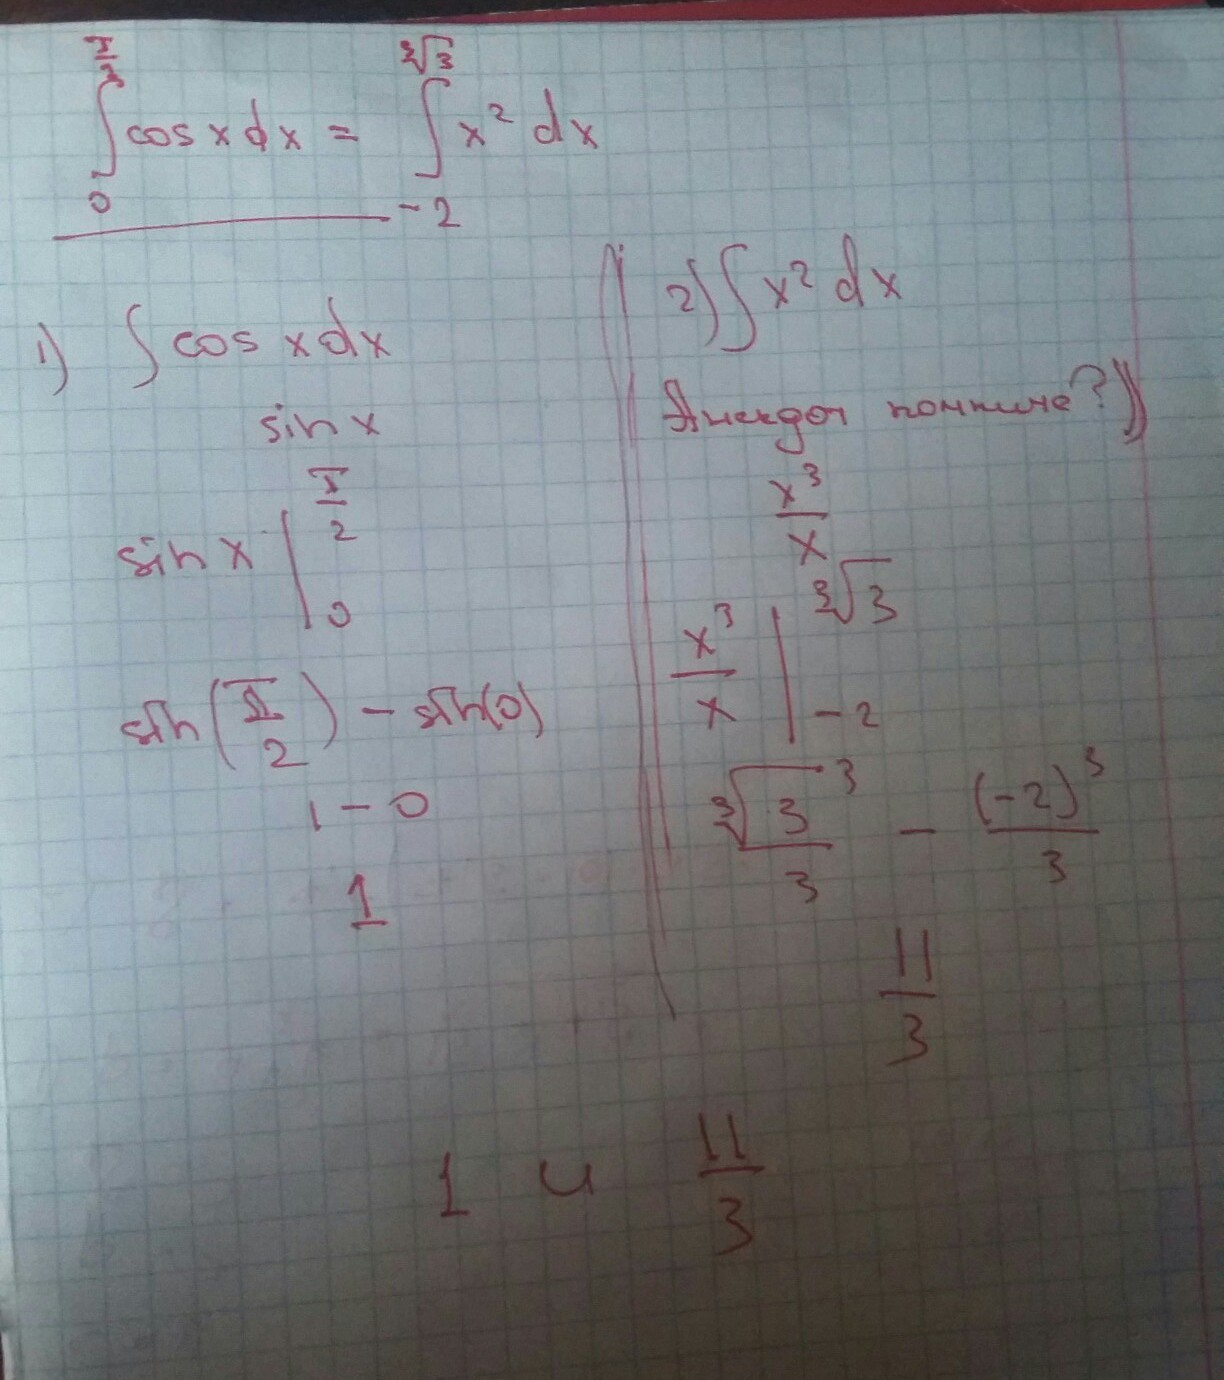 ∫₀^(π/2) cos x dx = ∫₋₂^(∛3) x² dx
1) ∫ cos x dx
sin x
sin x |₀^(π/2)
sin(π/2) − sin(0)
1 − 0
1
2) ∫ x² dx
Анекдот помните?))
x³/x
x³/x |₋₂^(∛3)
∛3³/3 − (−2)³/3
11/3
1 и 11/3